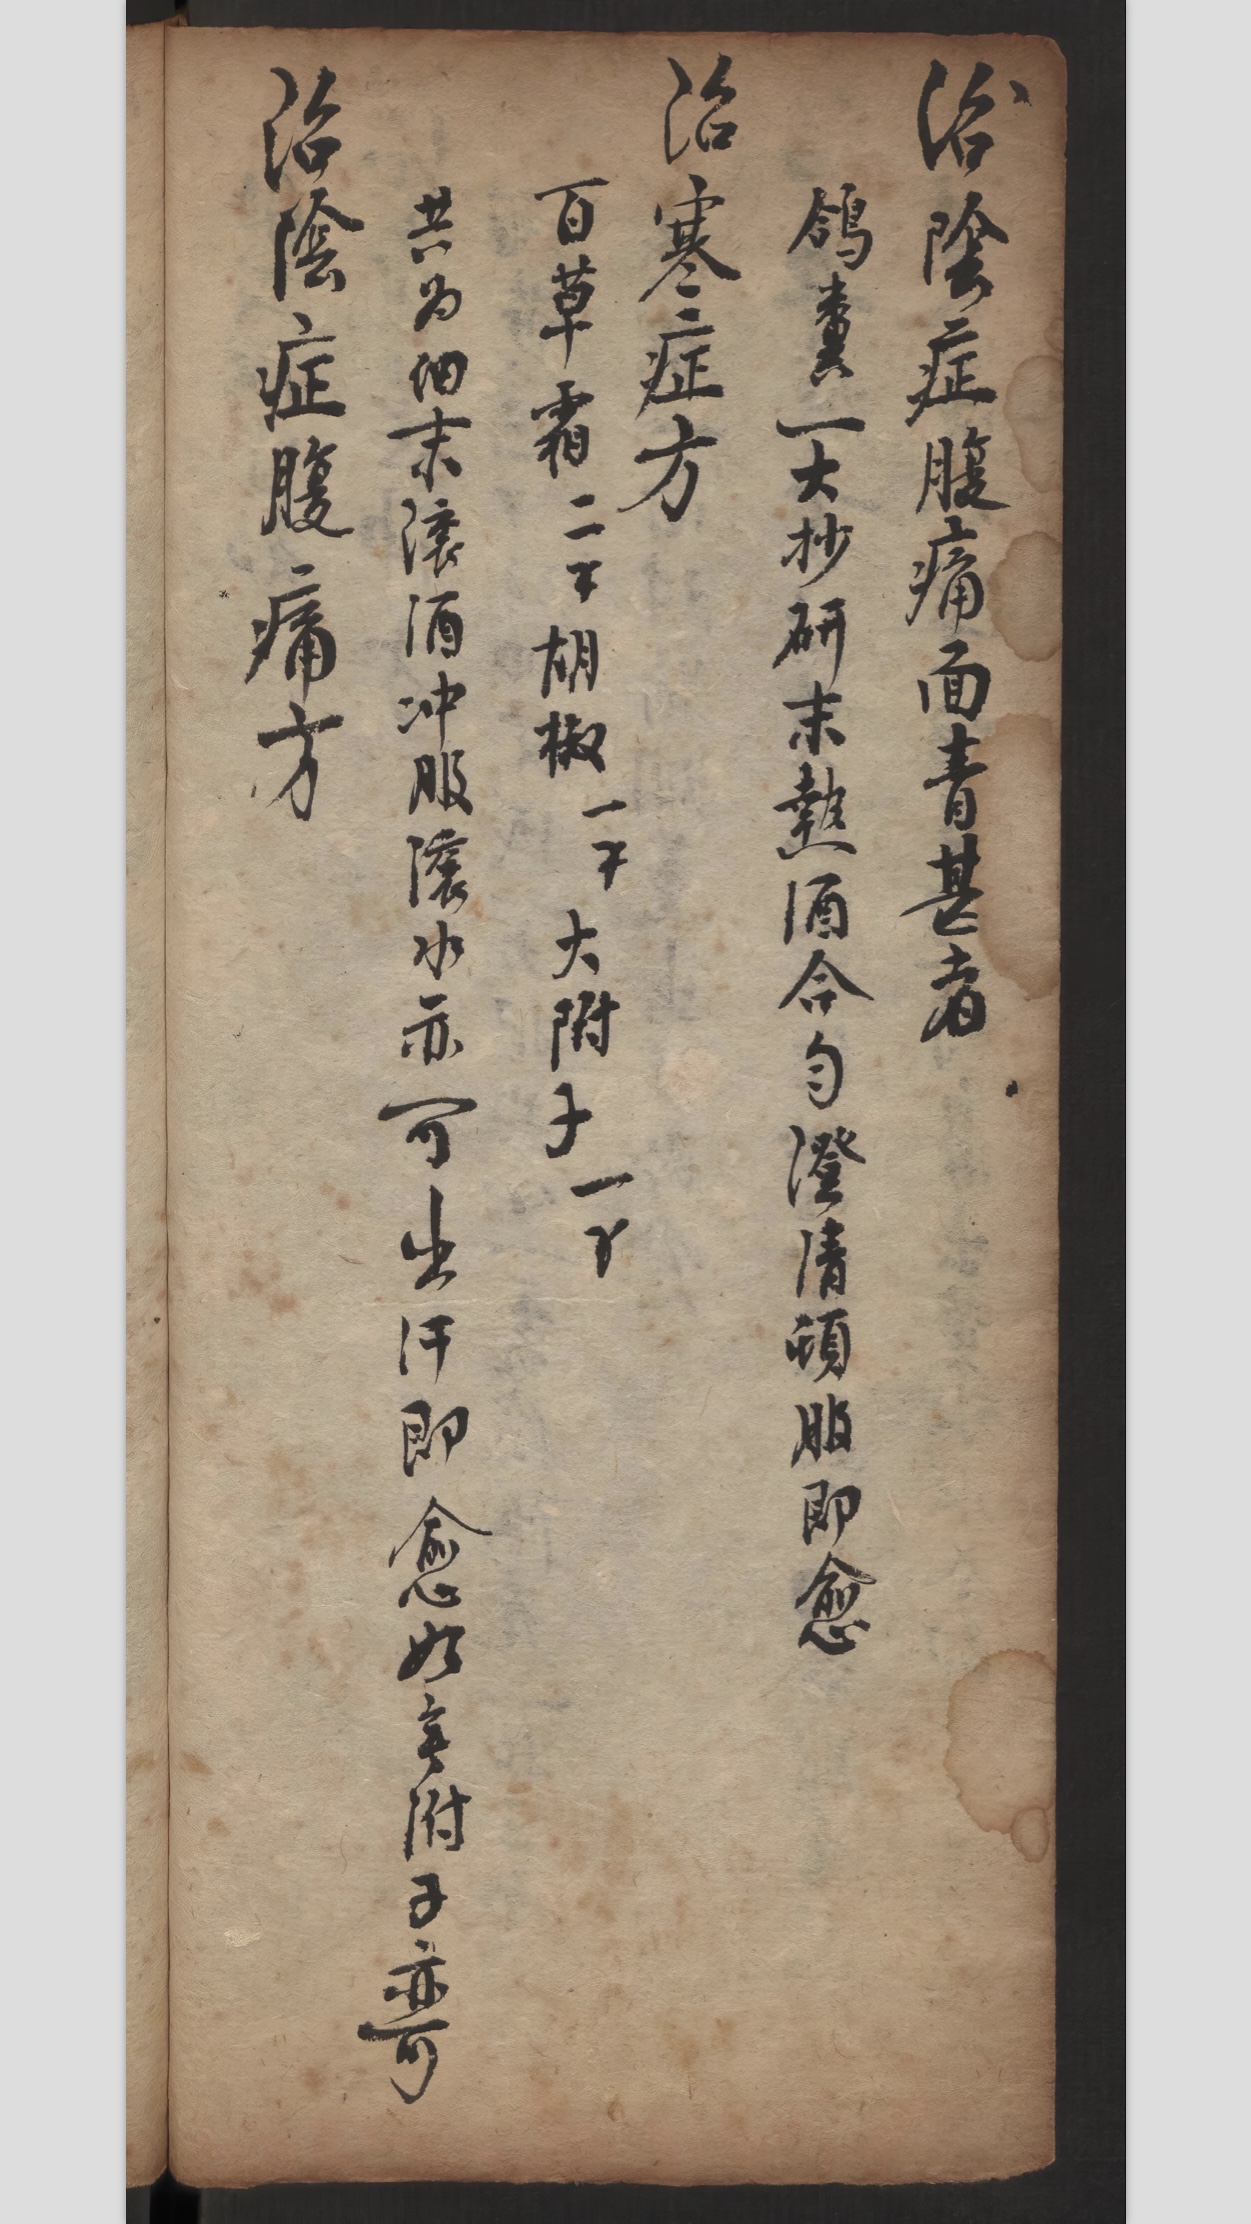 治陰症腹痛面青甚者
鴿糞一大抄研末熱酒合勻澄清頓服即愈
治寒症方
百草霜二錢胡椒一錢大附子一
共为細末滾酒冲服滾水亦可出汗即愈如無附子亦可
治陰症腹痛方